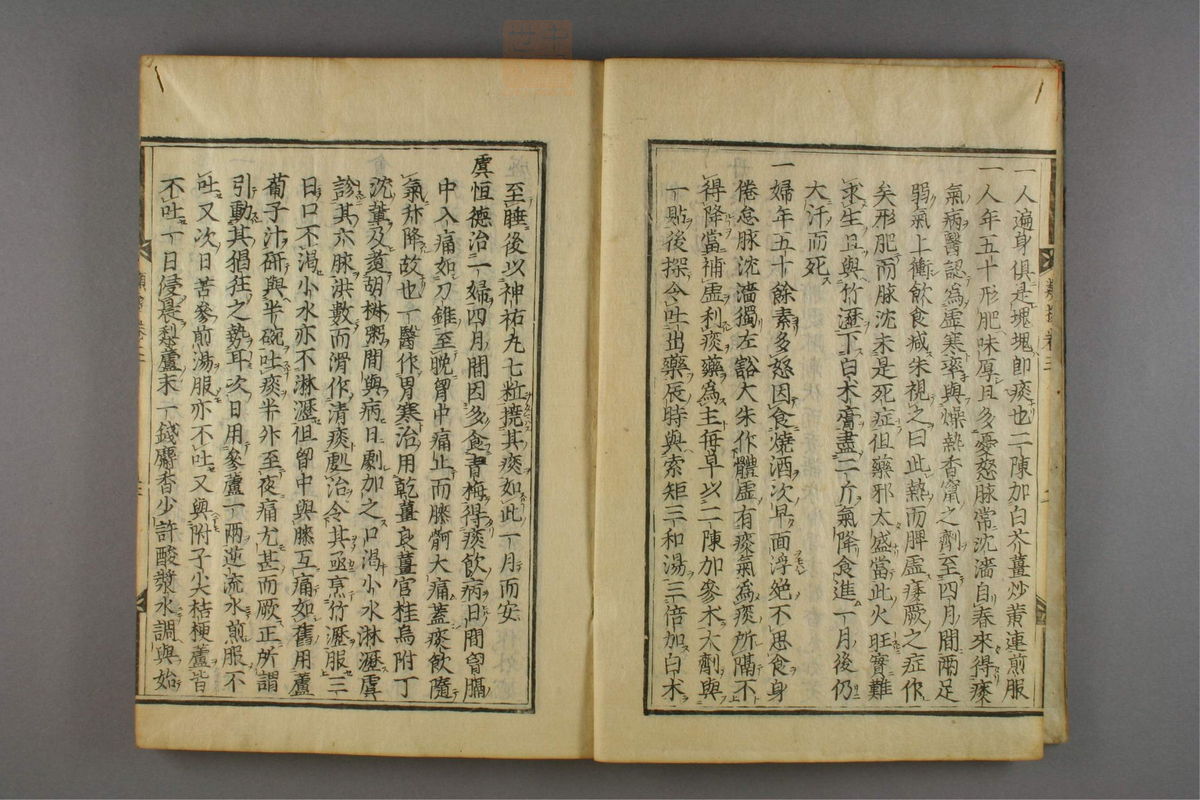 一人遍身俱是塊塊即痰也二陳加白芥薑炒黄連煎服
一人年五十形肥味厚且多憂怒脉常沈濇自春來得痰
氣病醫認為虚寒率與燥熱香竄之劑至四月間兩足
弱氣上衝飲食减朱視之曰此熱而脾虚痿厥之症作
矣形肥而脉沈未是死症但藥邪太盛當此火旺實難
求生且與竹瀝下白术膏盡二斤氣降食進一月後仍
大汗而死
一婦年五十餘素多怒因食燒酒次早面浮絶不思食身
倦怠脉沈濇獨左豁大朱作體虚有痰氣為痰所隔不
得降當補虚利痰藥為主每早以二陳加參术大劑與
一貼後探令吐出藥辰時與索矩三和湯三倍加白术
至睡後以神祐丸七粒撓其痰如此一月而安
虞恒德治一婦四月間因多食青梅得痰飲病日間胷膈
中入痛如刀錐至晚胷中痛止而膝䯒大痛葢痰飲隨
氣升降故也一醫作胃寒治用乾薑良薑官桂烏附丁
沈輩及煮胡椒粥間與病日劇加之口渴小水淋瀝虞
診其六脉洪數而滑作清痰處治令其亟烹竹瀝服三
日口不渴小水亦不淋瀝但胷中與膝互痛如舊用蘆
萄子汁研與半碗吐痰半升至夜痛尤甚而厥正所謂
引動其猖狂之勢耳次日用參蘆一兩逆流水煎服不
吐又次日苦參煎湯服亦不吐又與附子尖桔梗蘆皆
不吐一日侵晨藜蘆末一錢麝香少許酸漿水調與始